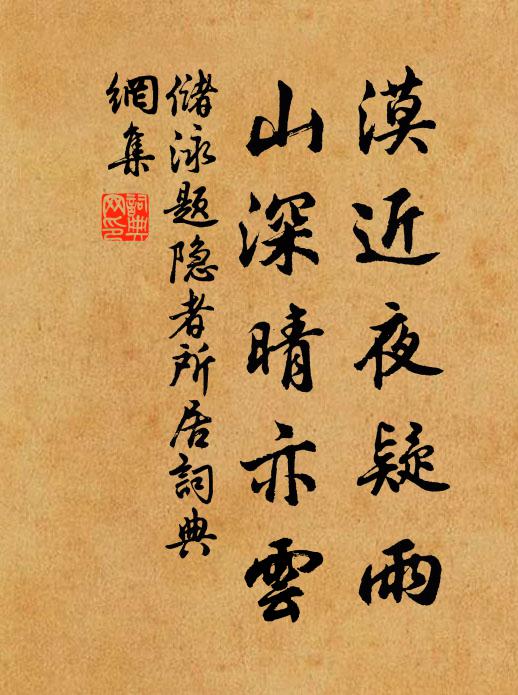 漠近夜疑雨
山深晴亦雲
儲泳题隐者所居詞典
網集
詞典
网印